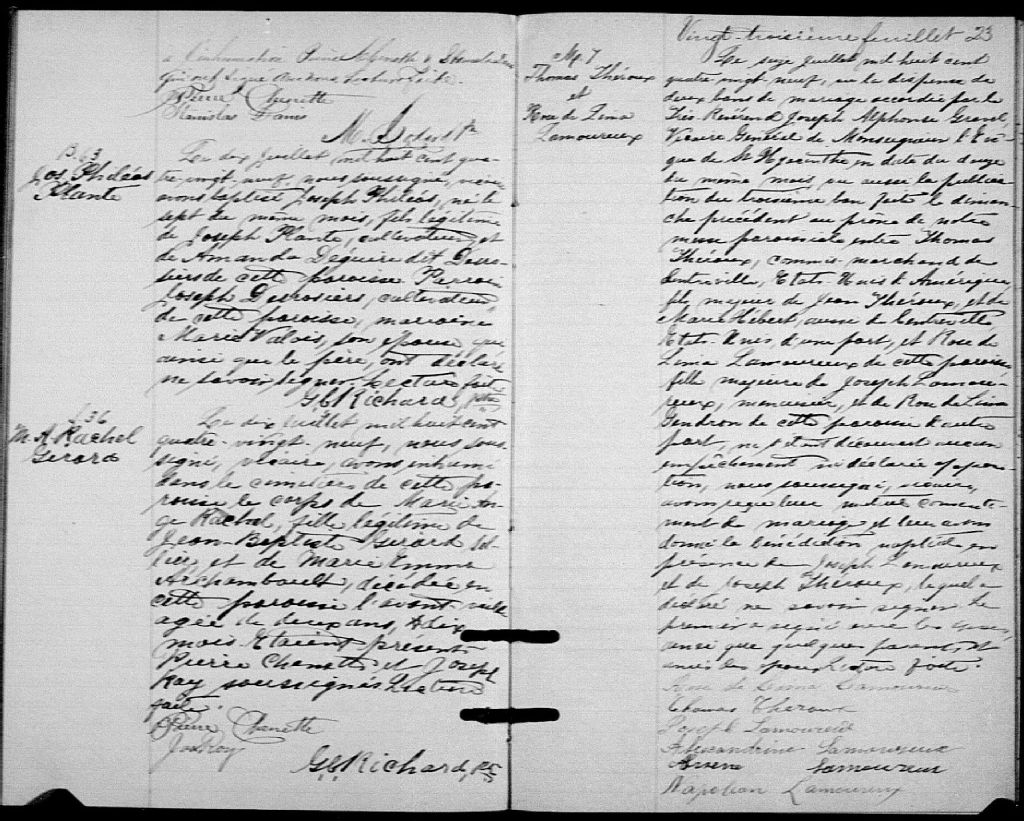 à l'inhumation Pierre
Pierre Chenette
Stanislas
B. 63
Jos. Philéas
Plante
Le dix Juillet mil huit cent qua-
tre vingt neuf, nous soussigné, vicaire
avons baptisé Joseph Philéas, né le
sept du même mois, fils légitime
de Joseph Plante, cultivateur, et
de Amanda Déquire dit Desro-
siers de cette paroisse Parrain
Joseph Desrosiers, cultivateur
de cette paroisse, marraine
Marie Valois, son épouse qui
ainsi que le père, ont déclaré
ne savoir signer. Lecture faite
G. C. Richard, ptre
S. 36
M. A. Rachel
Gerard
Le dix Juillet mil huit cent
quatre-vingt-neuf, nous sous-
signé, vicaire, avons inhumé
dans le cimetière de cette pa-
roisse le corps de Marie An-
ge Rachel, fille légitime de
Jean-Baptiste Gerard
et de Marie Emma
Archambault, décédée en
cette paroisse l'avant-veille
agée de deux ans,
mois. Etaient présents
Pierre Chenette et Joseph
Roy soussignés Lecture
faite.
Pierre Chenette
Jos Roy
G. C. Richard, Ptre
Vingt-troisième feuillet 23
M. 7
Thomas Théroux
et
Rose de Lima
Lamoureux
Le seize Juillet mil huit cent
quatre vingt neuf, vu la dispense de
deux bans de mariage accordée par le
Très Révérend Joseph Alphonse Gravel
Vicaire Général de Monseigneur l'Evê-
que de St Hyacinthe en date du douze
du même mois, vu aussi la publica-
tion du troisième ban faite le diman-
che précédent au prône de notre
messe paroissiale entre Thomas
Théroux, commis-marchand de
Centreville, Etats-Unis d'Amérique
fils majeur de Jean Théroux, et de
Marie Hébert, aussi de Centreville
Etats-Unis d'une part, et Rose de
Lima Lamoureux de cette paroisse
fille majeure de Joseph Lamou-
reux, menuisier, et de Rose de Lima
Gendron de cette paroisse d'autre
part, ne s'étant découvert aucun
empêchement ni déclaré opposi-
tion, nous soussigné, vicaire,
avons reçu leur mutuel consente-
ment de mariage et leur avons
donné la bénédiction nuptiale en
présence de Joseph Lamoureux
et de Joseph Théroux, lequel a
déclaré ne savoir signer. Le
premier a signé avec les époux,
ainsi que quelques parents, et
amis des époux. Lecture faite.
Rose de Lima Lamoureux
Thomas Theroux
Joseph Lamoureux
Alexandrine Lamoureux
Arsene Lamoureux
Napoléon Lamoureux